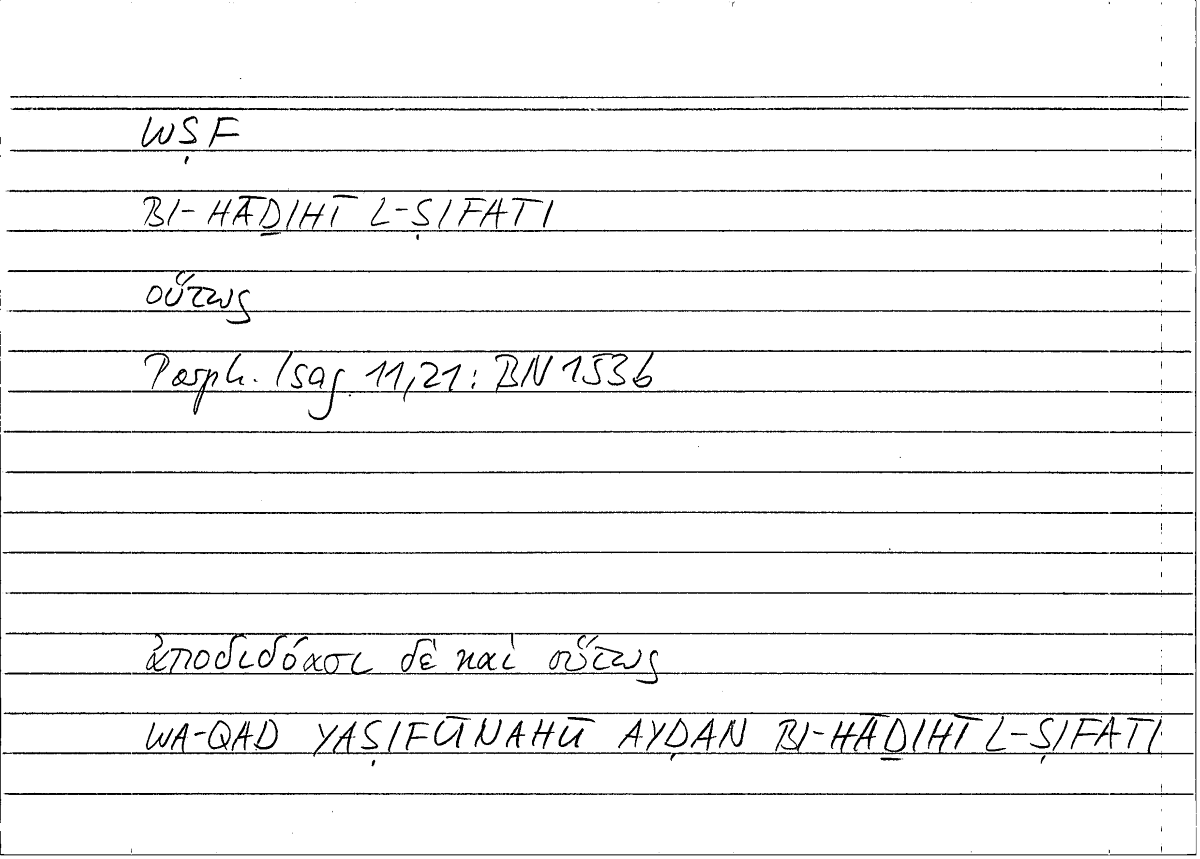 WṢF
BI-HĀḎIHĪ L-ṢIFATI
οὕτως
Porph. Isag. 11,21: BN 153b
ἀποδιδόασι δὲ καὶ οὕτως
WA-QAD YAṢIFŪNAHŪ AYḌAN BI-HĀḎIHĪ L-ṢIFATI